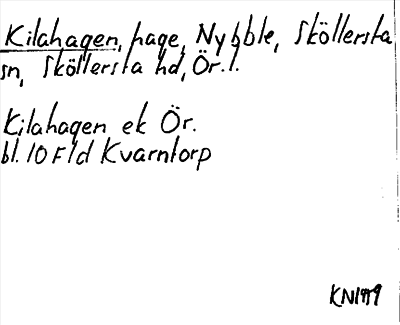 Kilahagen, hage, Nybble, Sköllersta
sn, Sköllersta hd, Ör.l.
Kilahagen ek Ör.
bl. 10 F/d Kvarntorp